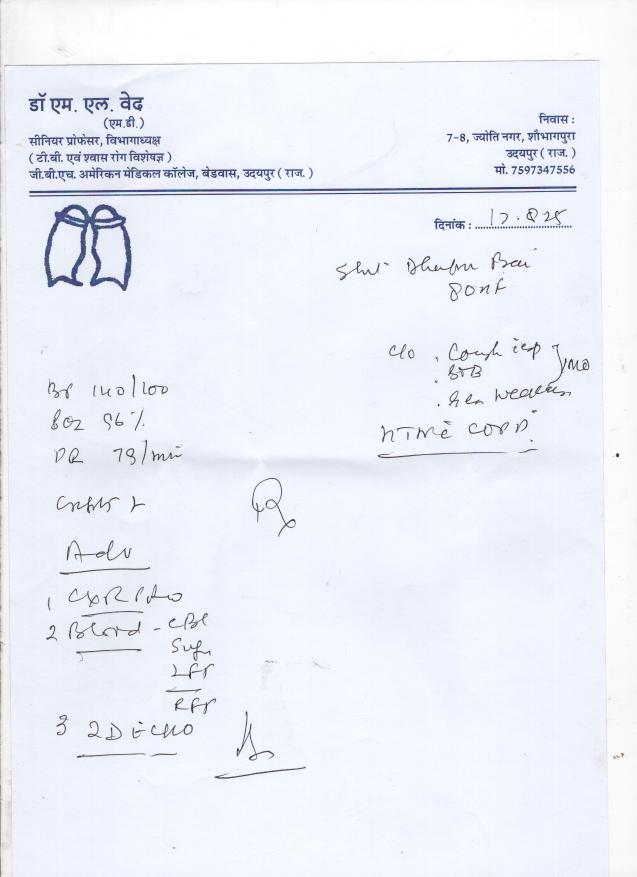 डॉ एम. एल. वेद
(एम.डी.)
सीनियर प्रोफेसर, विभागाध्यक्ष
( टी.बी. एवं श्वास रोग विशेषज्ञ )
जी.बी.एच. अमेरिकन मेडिकल कॉलेज, बेडवास, उदयपुर ( राज. )
निवास :
7-8, ज्योति नगर, शौभागपुरा
उदयपुर ( राज. )
मो. 7597347556
दिनांक : 17.8.25
Bai
80
c/o . Cough
. 
. Gen weakness
HTN COPD
BP 140/100
SO2 96%
PR 79/min
Rx
Adv
1 CXR PA
2 Blood - CBC
Sugar
LFT
RFT
3 2D ECHO